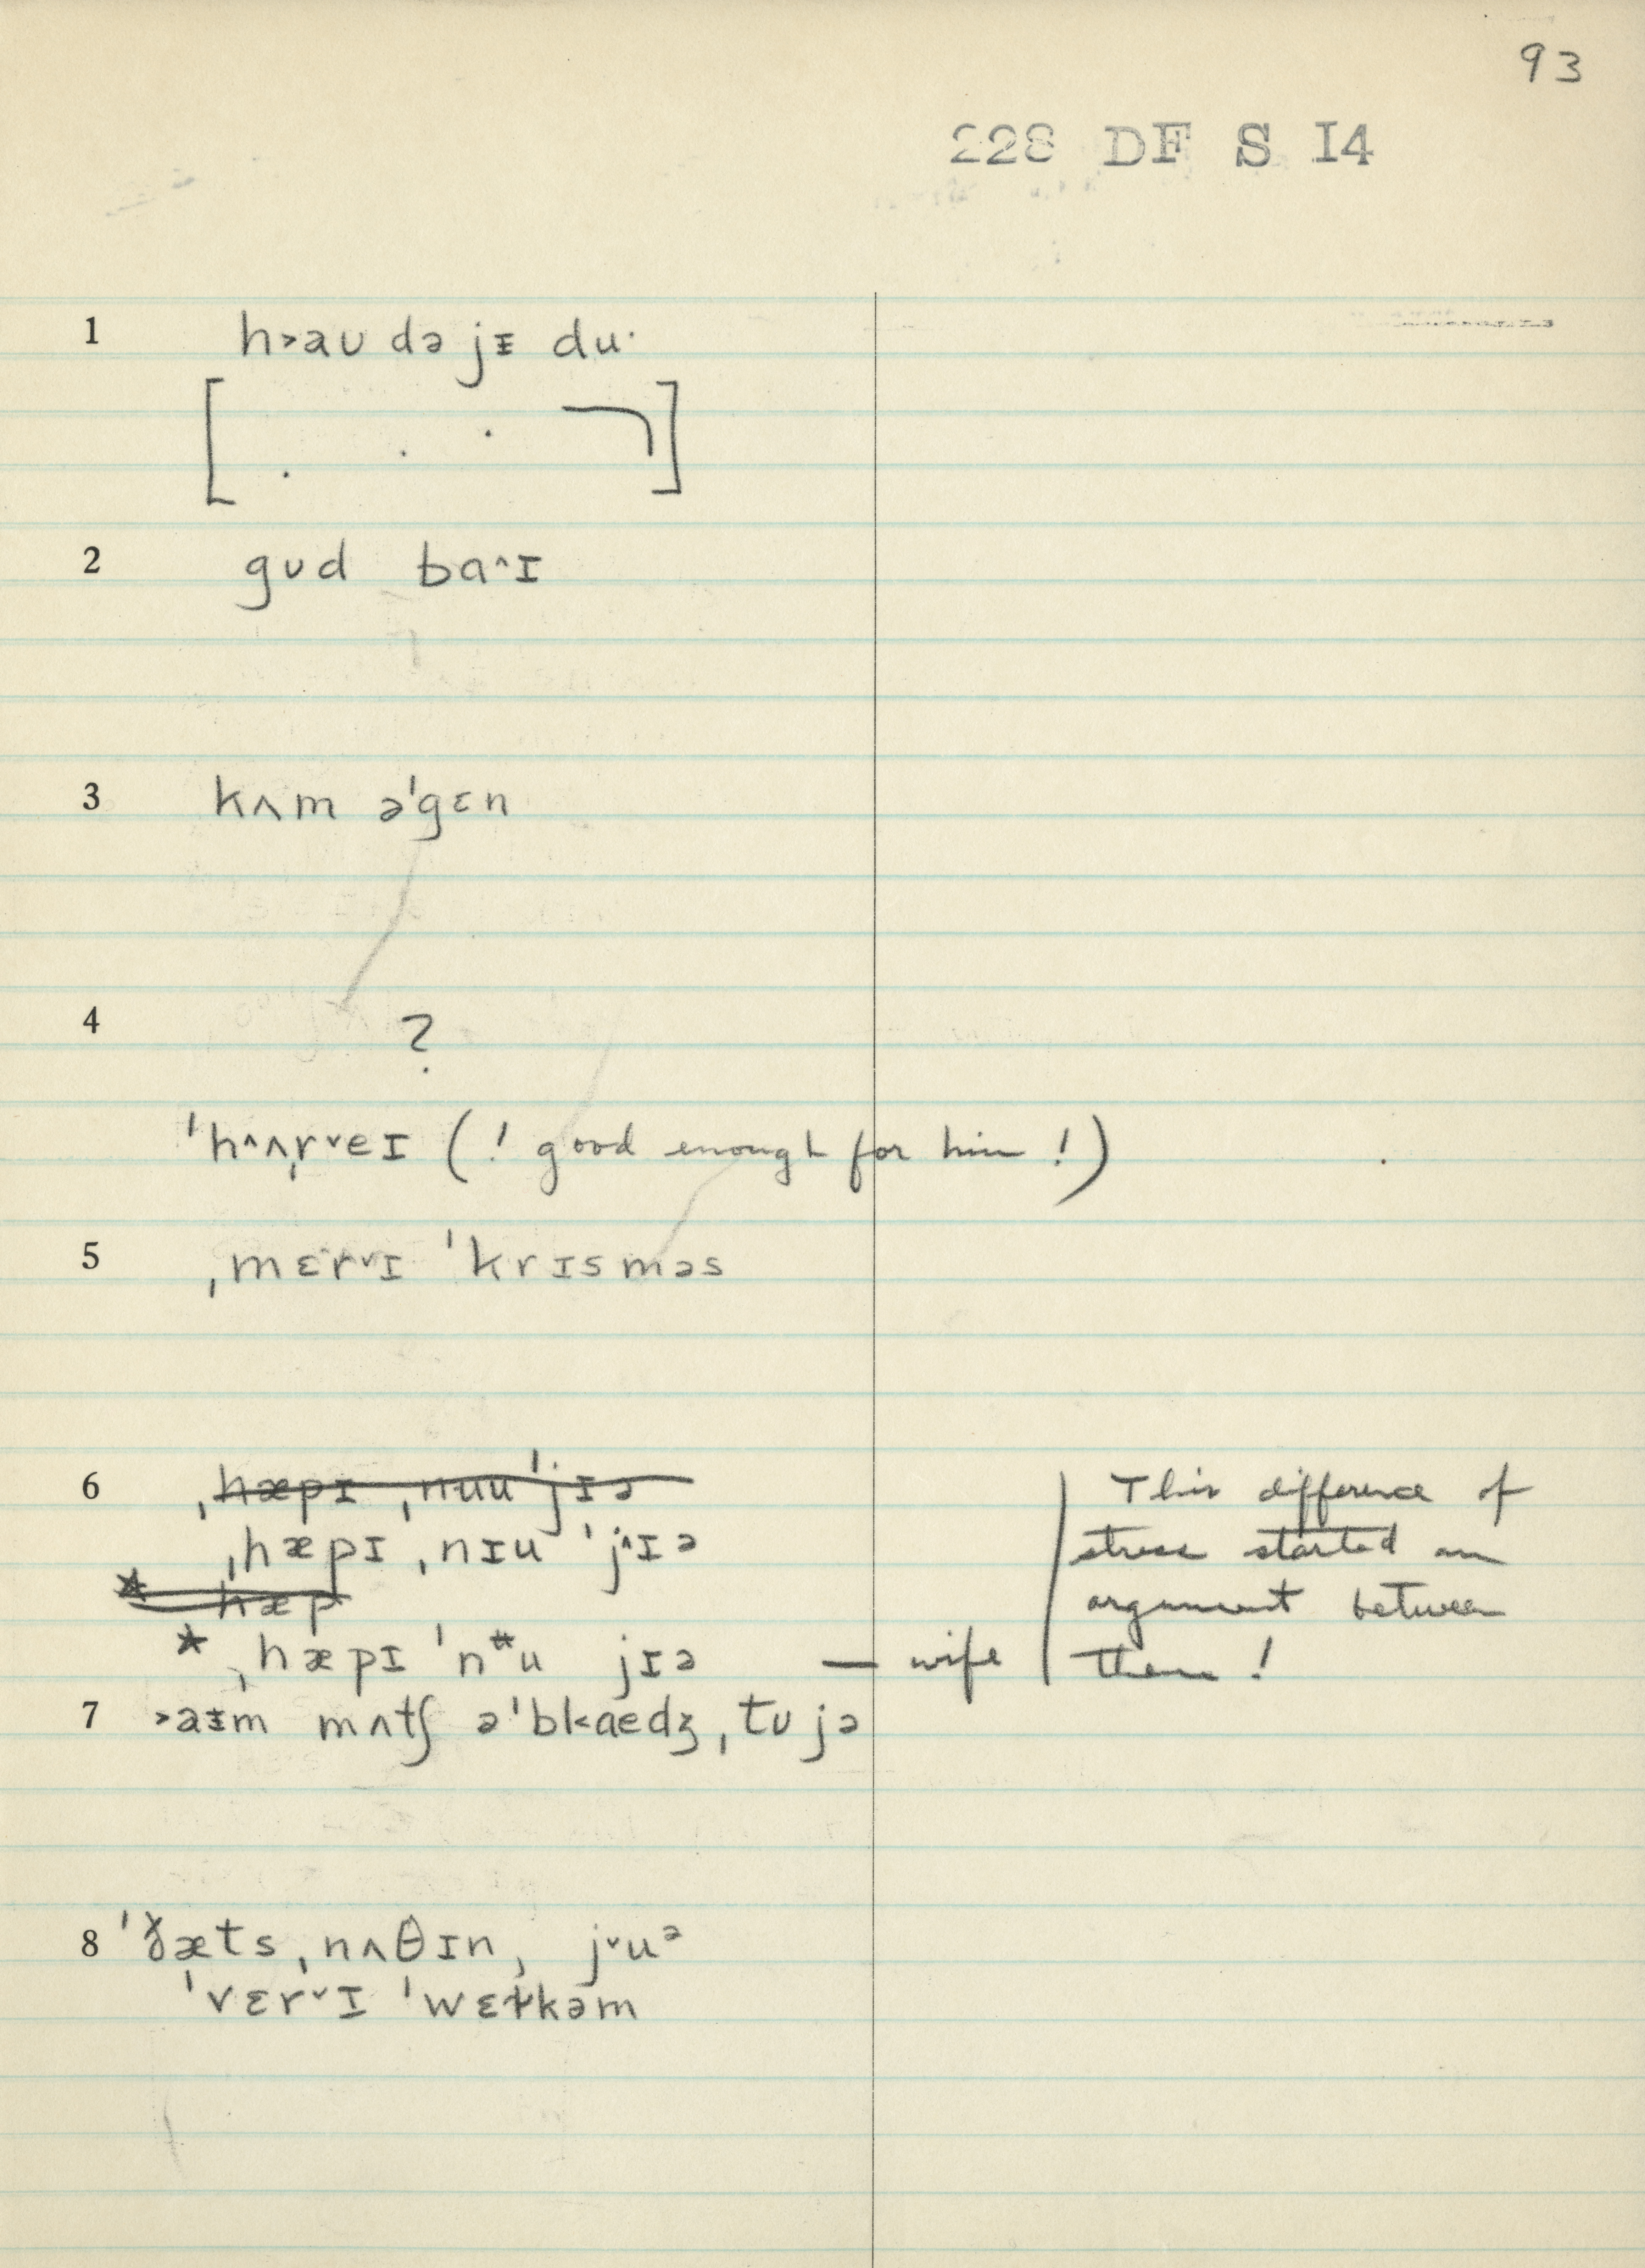 93
228 DF S I4
1 h˃aʊ də jᵻ du·
2 gʊd ba˄ɪ
3 kʌm əˈgɛn
4 ?
ˈh˄ʌˌr˅eɪ (! good enough for him !)
5 ˌmɛr˅ɪ ˈkrɪsməs
6 ˌhæpɪ ˌnuu ˈjɪə
ˌhæpɪ ˌnɪu ˈj˄ɪə
* hæp
* ˌhæpɪ ˈnᵻu jɪə — wife
This difference of
stress started an
argument between
them !
7 ˃aᵻm mʌtʃ əˈbl˂aedʒ ˌtʊ jə
8 ˈðæts ˌnʌθɪn, j˅uᵊ
ˈvɛr˅ɪ ˈwɛɫkəm